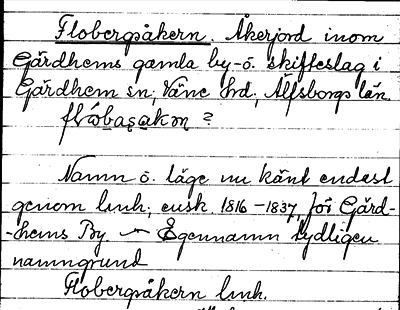 Flobergsåkern. Åkerjord inom
Gärdhems gamla by- o. skifteslag i
Gärdhem sn; Väne hrd; Älfsborgs län.
?
Namn o. läge nu känt endast
genom lmh; ensk. 1816-1837, för Gärd-
-hems By — Egennamn tydligen
namngrund
Flobergsåkern lmh.